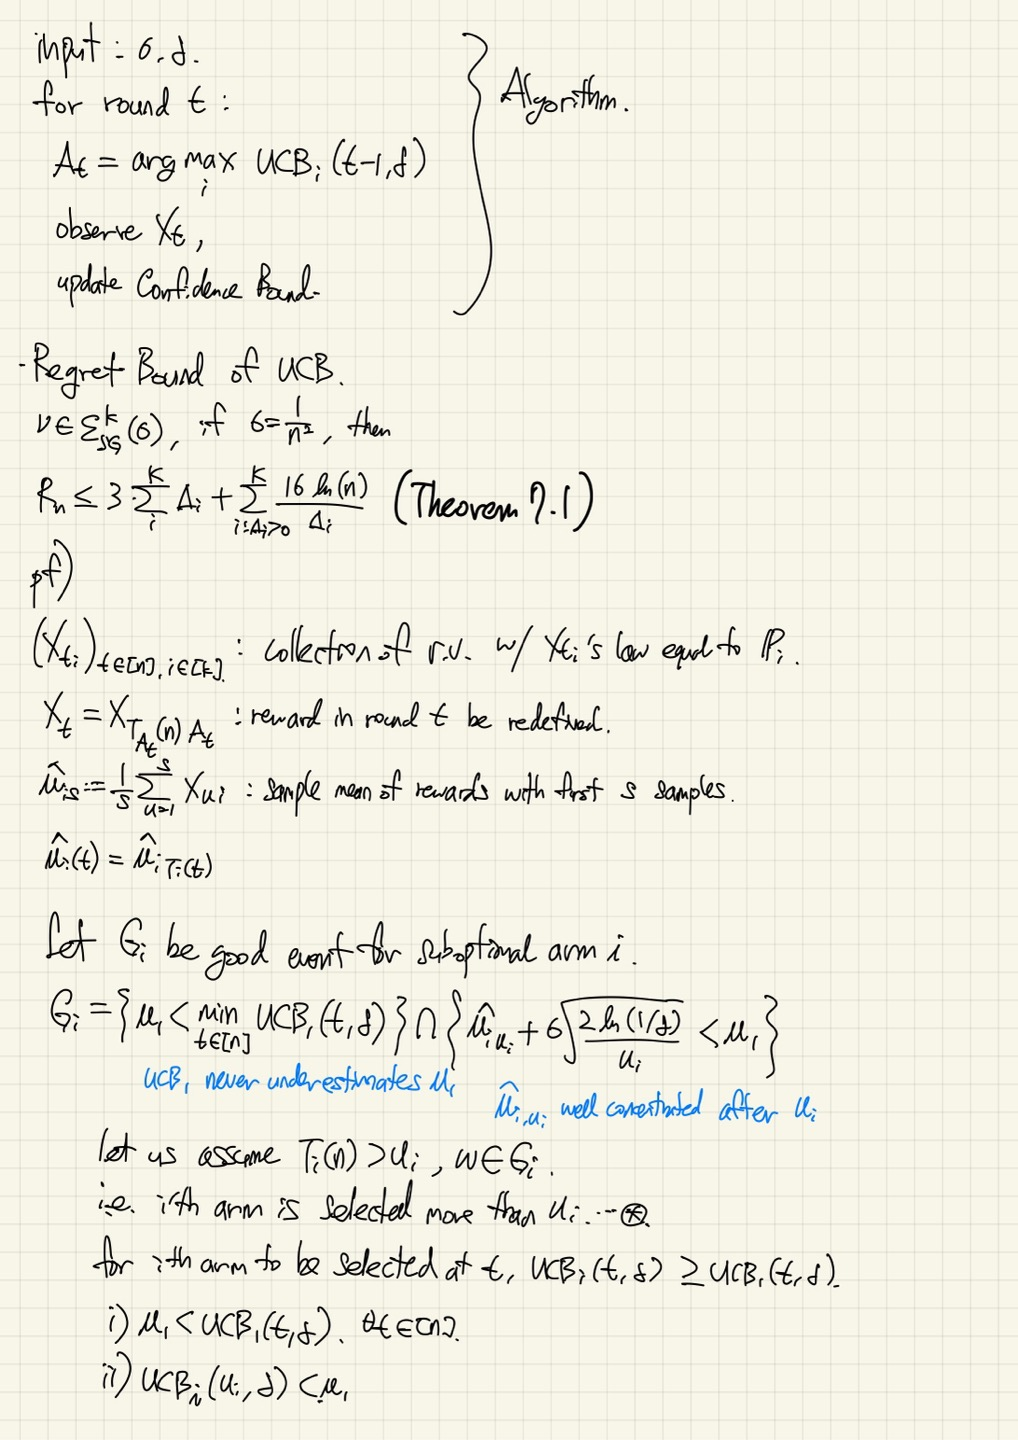 input : σ, δ.
for round t :
A_t = arg max_i UCB_i (t-1, δ)
observe X_t ,
update Confidence Bound.
Algorithm.
- Regret Bound of UCB.
ν ∈ Σ^k_SG (σ), if σ = 1/n², then
R_n ≤ 3 Σ_i^K Δ_i + Σ_{i:Δ_i>0}^K 16 ln(n) / Δ_i (Theorem 7.1)
pf)
(X_ti)_{t∈[n], i∈[k]} : collection of r.v. w/ X_ti's law equal to P_i.
X_t = X_{T_{A_t}(n) A_t} : reward in round t be redefined.
μ̂_is := 1/s Σ_{u=1}^s X_ui : sample mean of rewards with first s samples.
μ̂_i(t) = μ̂_{i T_i(t)}
Let G_i be good event for suboptimal arm i.
G_i = { μ_1 < min_{t∈[n]} UCB_1(t, δ) } ∩ { μ̂_{i u_i} + σ √(2 ln(1/δ) / u_i) < μ_1 }
UCB_1 never underestimates μ_1
μ̂_{i,u_i} well concentrated after u_i
let us assume T_i(n) > u_i , w ∈ G_i.
i.e. i'th arm is selected more than u_i. ... ⊛.
for i'th arm to be selected at t, UCB_i(t, δ) ≥ UCB_1(t, δ).
i) μ_1 < UCB_1(t, δ). ∀t ∈ [n].
ii) UCB_i (u_i, δ) < μ_1